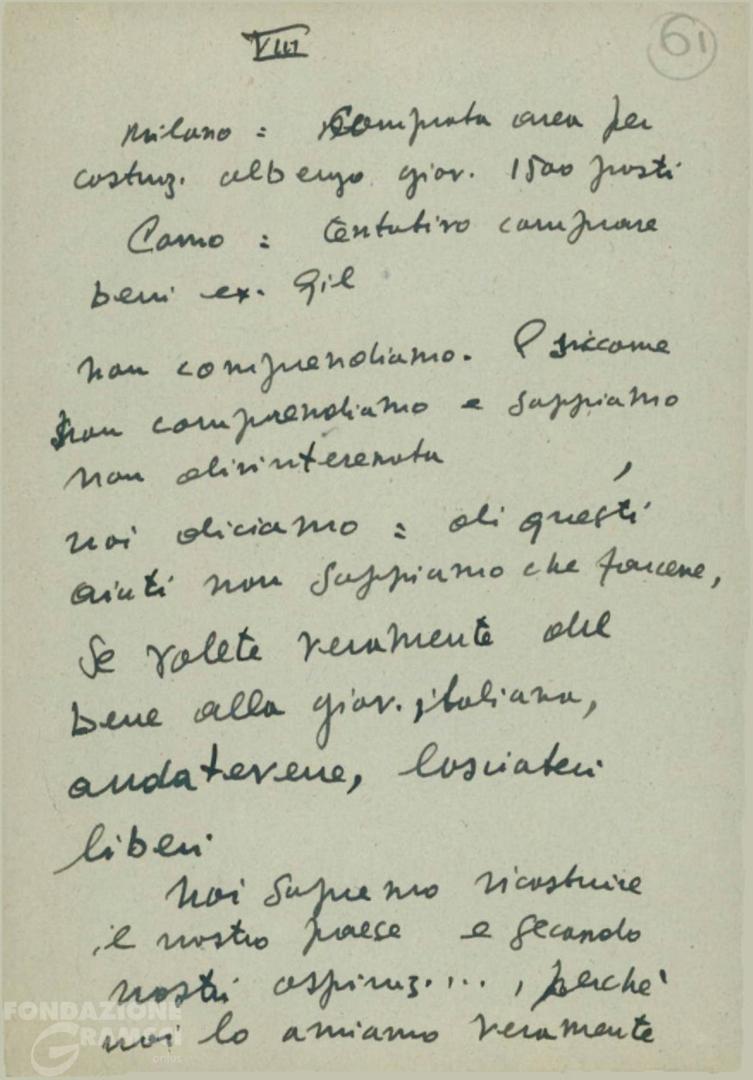 VIII
61
Milano = Comprata area per
costruz. albergo giov. 1500 posti
Como = tentativo comprare
beni ex. Gil
non comprendiamo. E siccome
non comprendiamo e sappiamo
non disinteressata
noi diciamo = di questi
aiuti non sappiamo che farcene,
Se volete veramente del
bene alla giov. italiana,
andatevene, lasciateci
liberi
Noi sapremo ricostruire
il nostro paese e secondo
nostri aspiraz...., perchè
noi lo amiamo veramente
FONDAZIONE
GRAMSCI
onlus